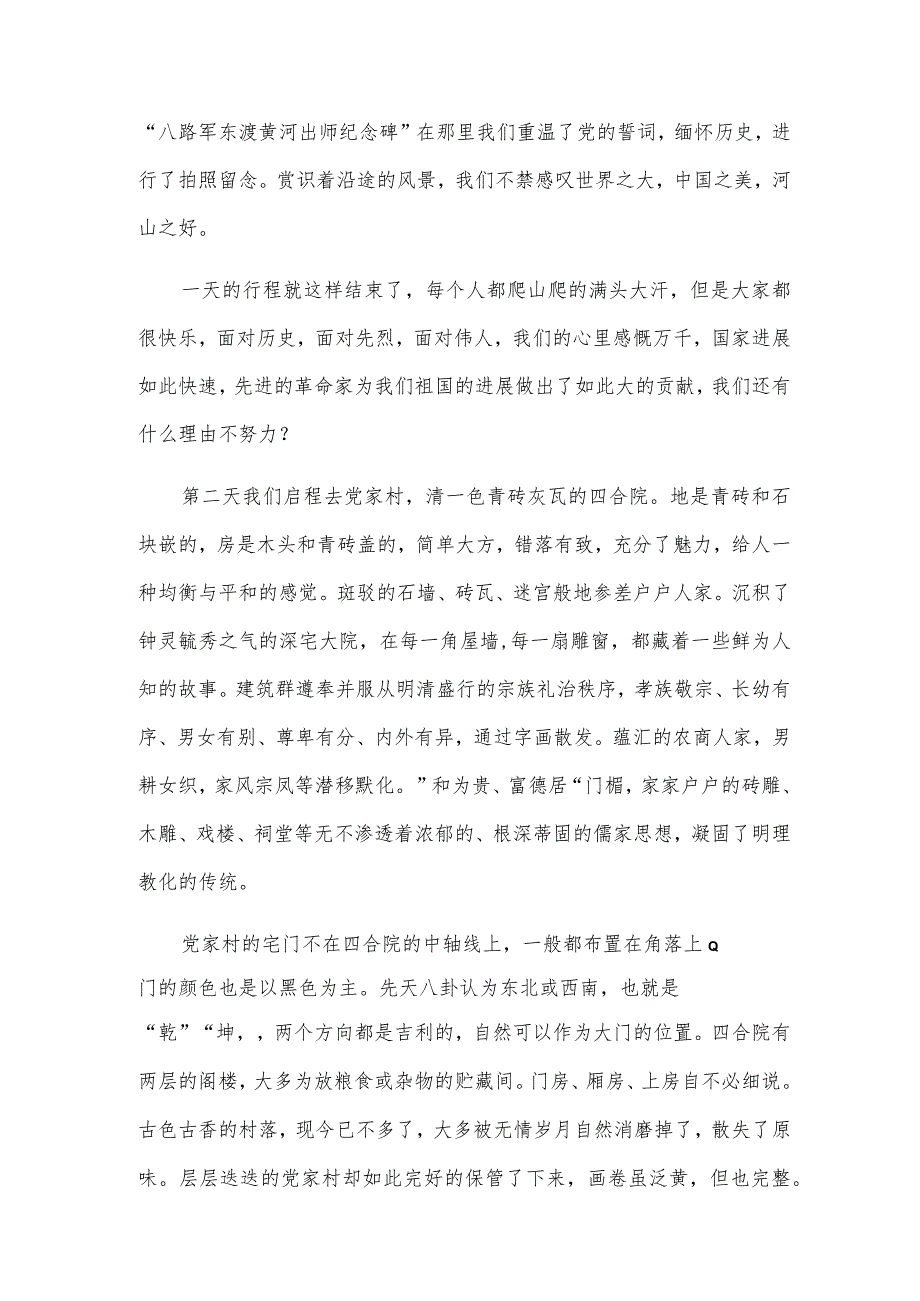 “八路军东渡黄河出师纪念碑”在那里我们重温了党的誓词，缅怀历史，进
行了拍照留念。赏识着沿途的风景，我们不禁感叹世界之大，中国之美，河
山之好。
一天的行程就这样结束了，每个人都爬山爬的满头大汗，但是大家都
很快乐，面对历史，面对先烈，面对伟人，我们的心里感慨万千，国家进展
如此快速，先进的革命家为我们祖国的进展做出了如此大的贡献，我们还有
什么理由不努力？
第二天我们启程去党家村，清一色青砖灰瓦的四合院。地是青砖和石
块嵌的，房是木头和青砖盖的，简单大方，错落有致，充分了魅力，给人一
种均衡与平和的感觉。斑驳的石墙、砖瓦、迷宫般地参差户户人家。沉积了
钟灵毓秀之气的深宅大院，在每一角屋墙,每一扇雕窗，都藏着一些鲜为人
知的故事。建筑群遵奉并服从明清盛行的宗族礼治秩序，孝族敬宗、长幼有
序、男女有别、尊卑有分、内外有异，通过字画散发。蕴汇的农商人家，男
耕女织，家风宗凤等潜移默化。”和为贵、富德居“门楣，家家户户的砖雕、
木雕、戏楼、祠堂等无不渗透着浓郁的、根深蒂固的儒家思想，凝固了明理
教化的传统。
党家村的宅门不在四合院的中轴线上，一般都布置在角落上Q
门的颜色也是以黑色为主。先天八卦认为东北或西南，也就是
“乾”“坤，，两个方向都是吉利的，自然可以作为大门的位置。四合院有
两层的阁楼，大多为放粮食或杂物的贮藏间。门房、厢房、上房自不必细说。
古色古香的村落，现今已不多了，大多被无情岁月自然消磨掉了，散失了原
味。层层迭迭的党家村却如此完好的保管了下来，画卷虽泛黄，但也完整。